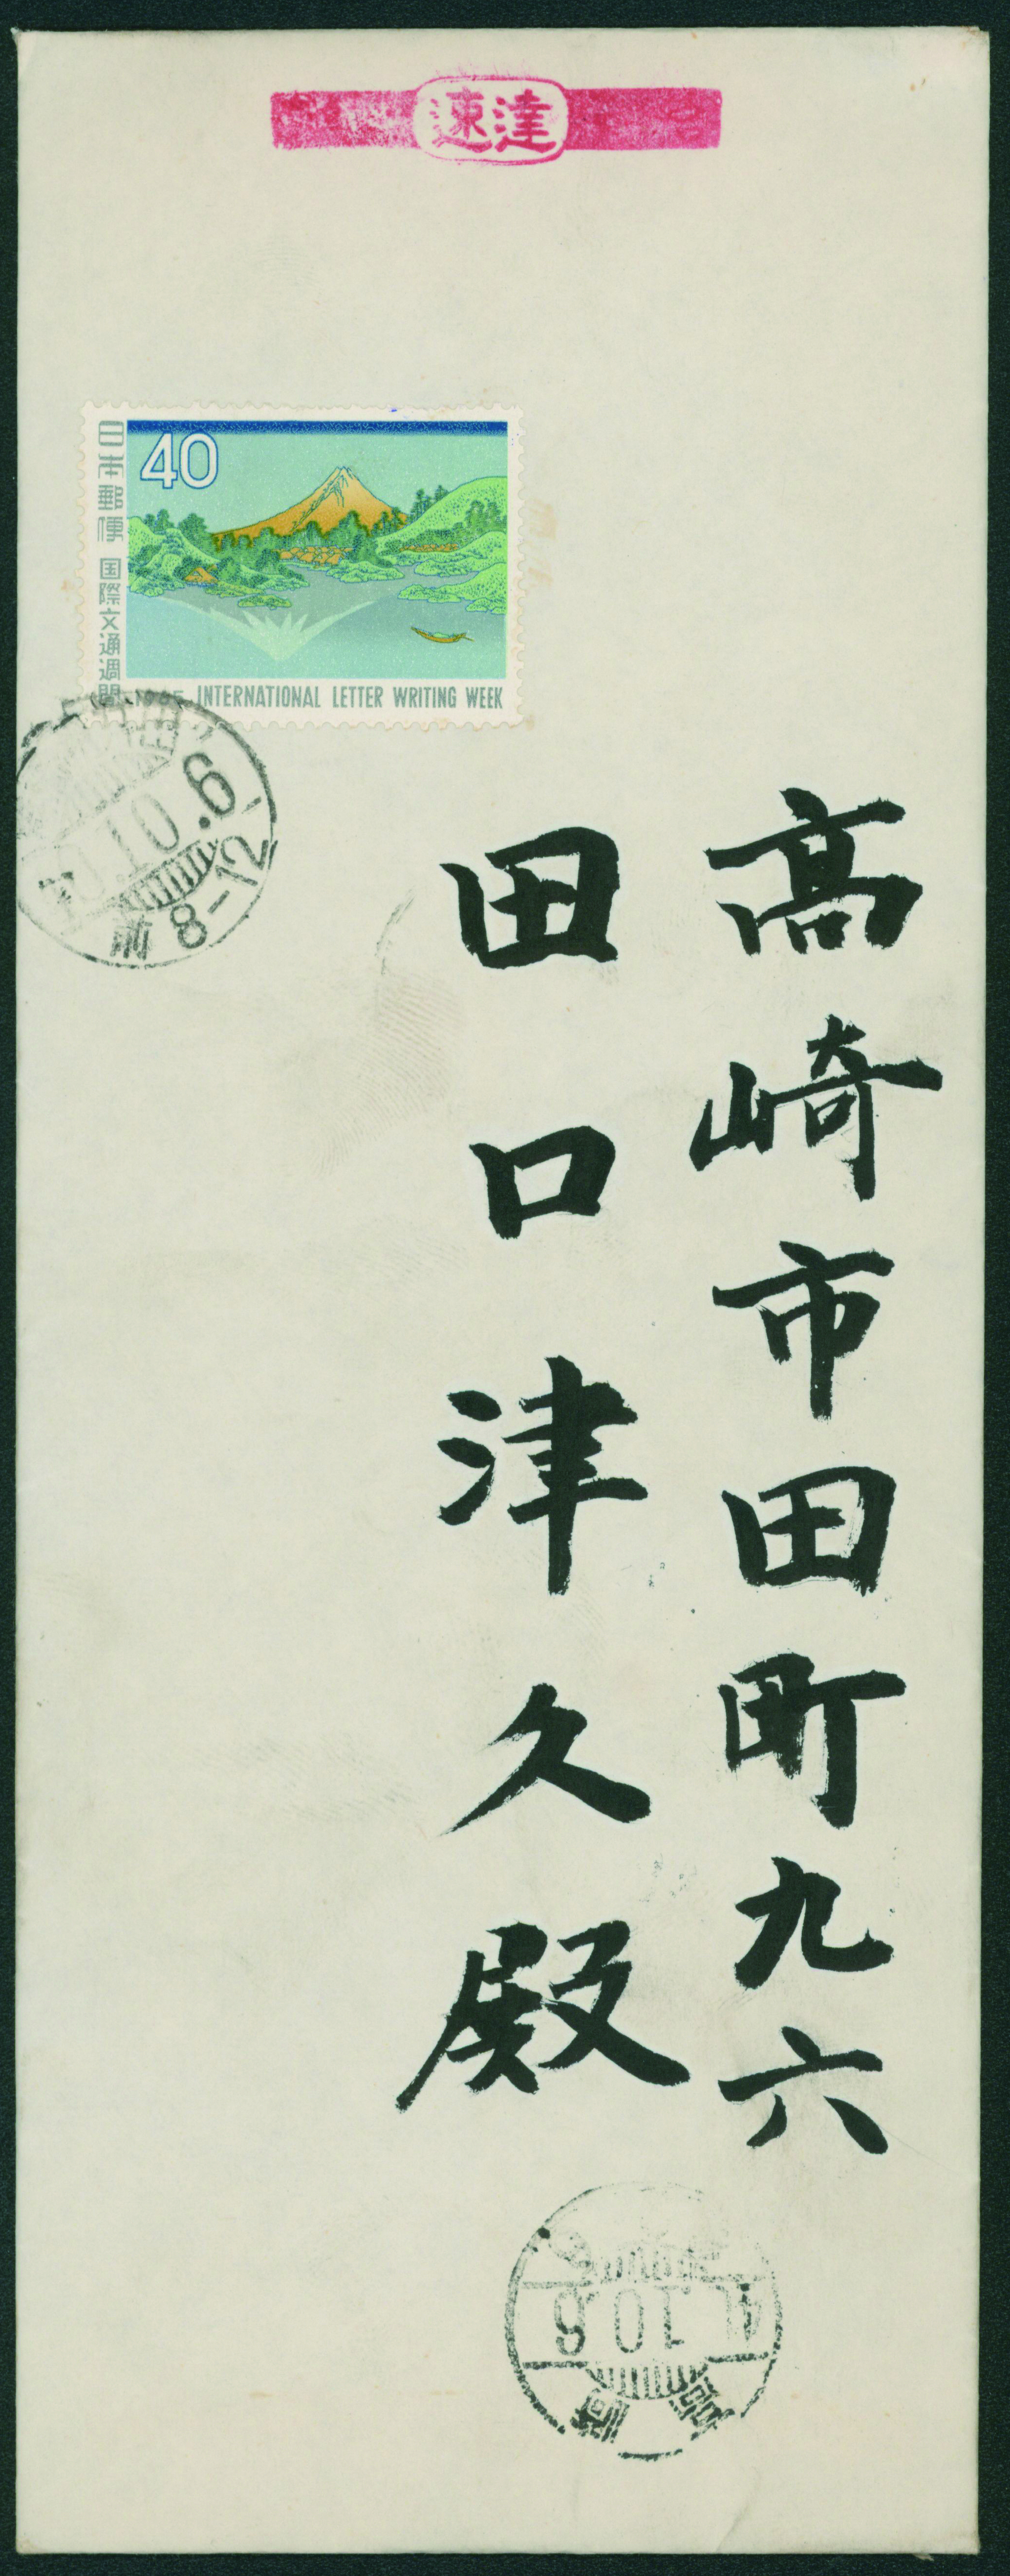 速達
40
日本郵便 国際文通週間
1965 INTERNATIONAL LETTER WRITING WEEK
10.6
前8-12
高崎市田町九六
田口津久殿
41.10.6
高崎